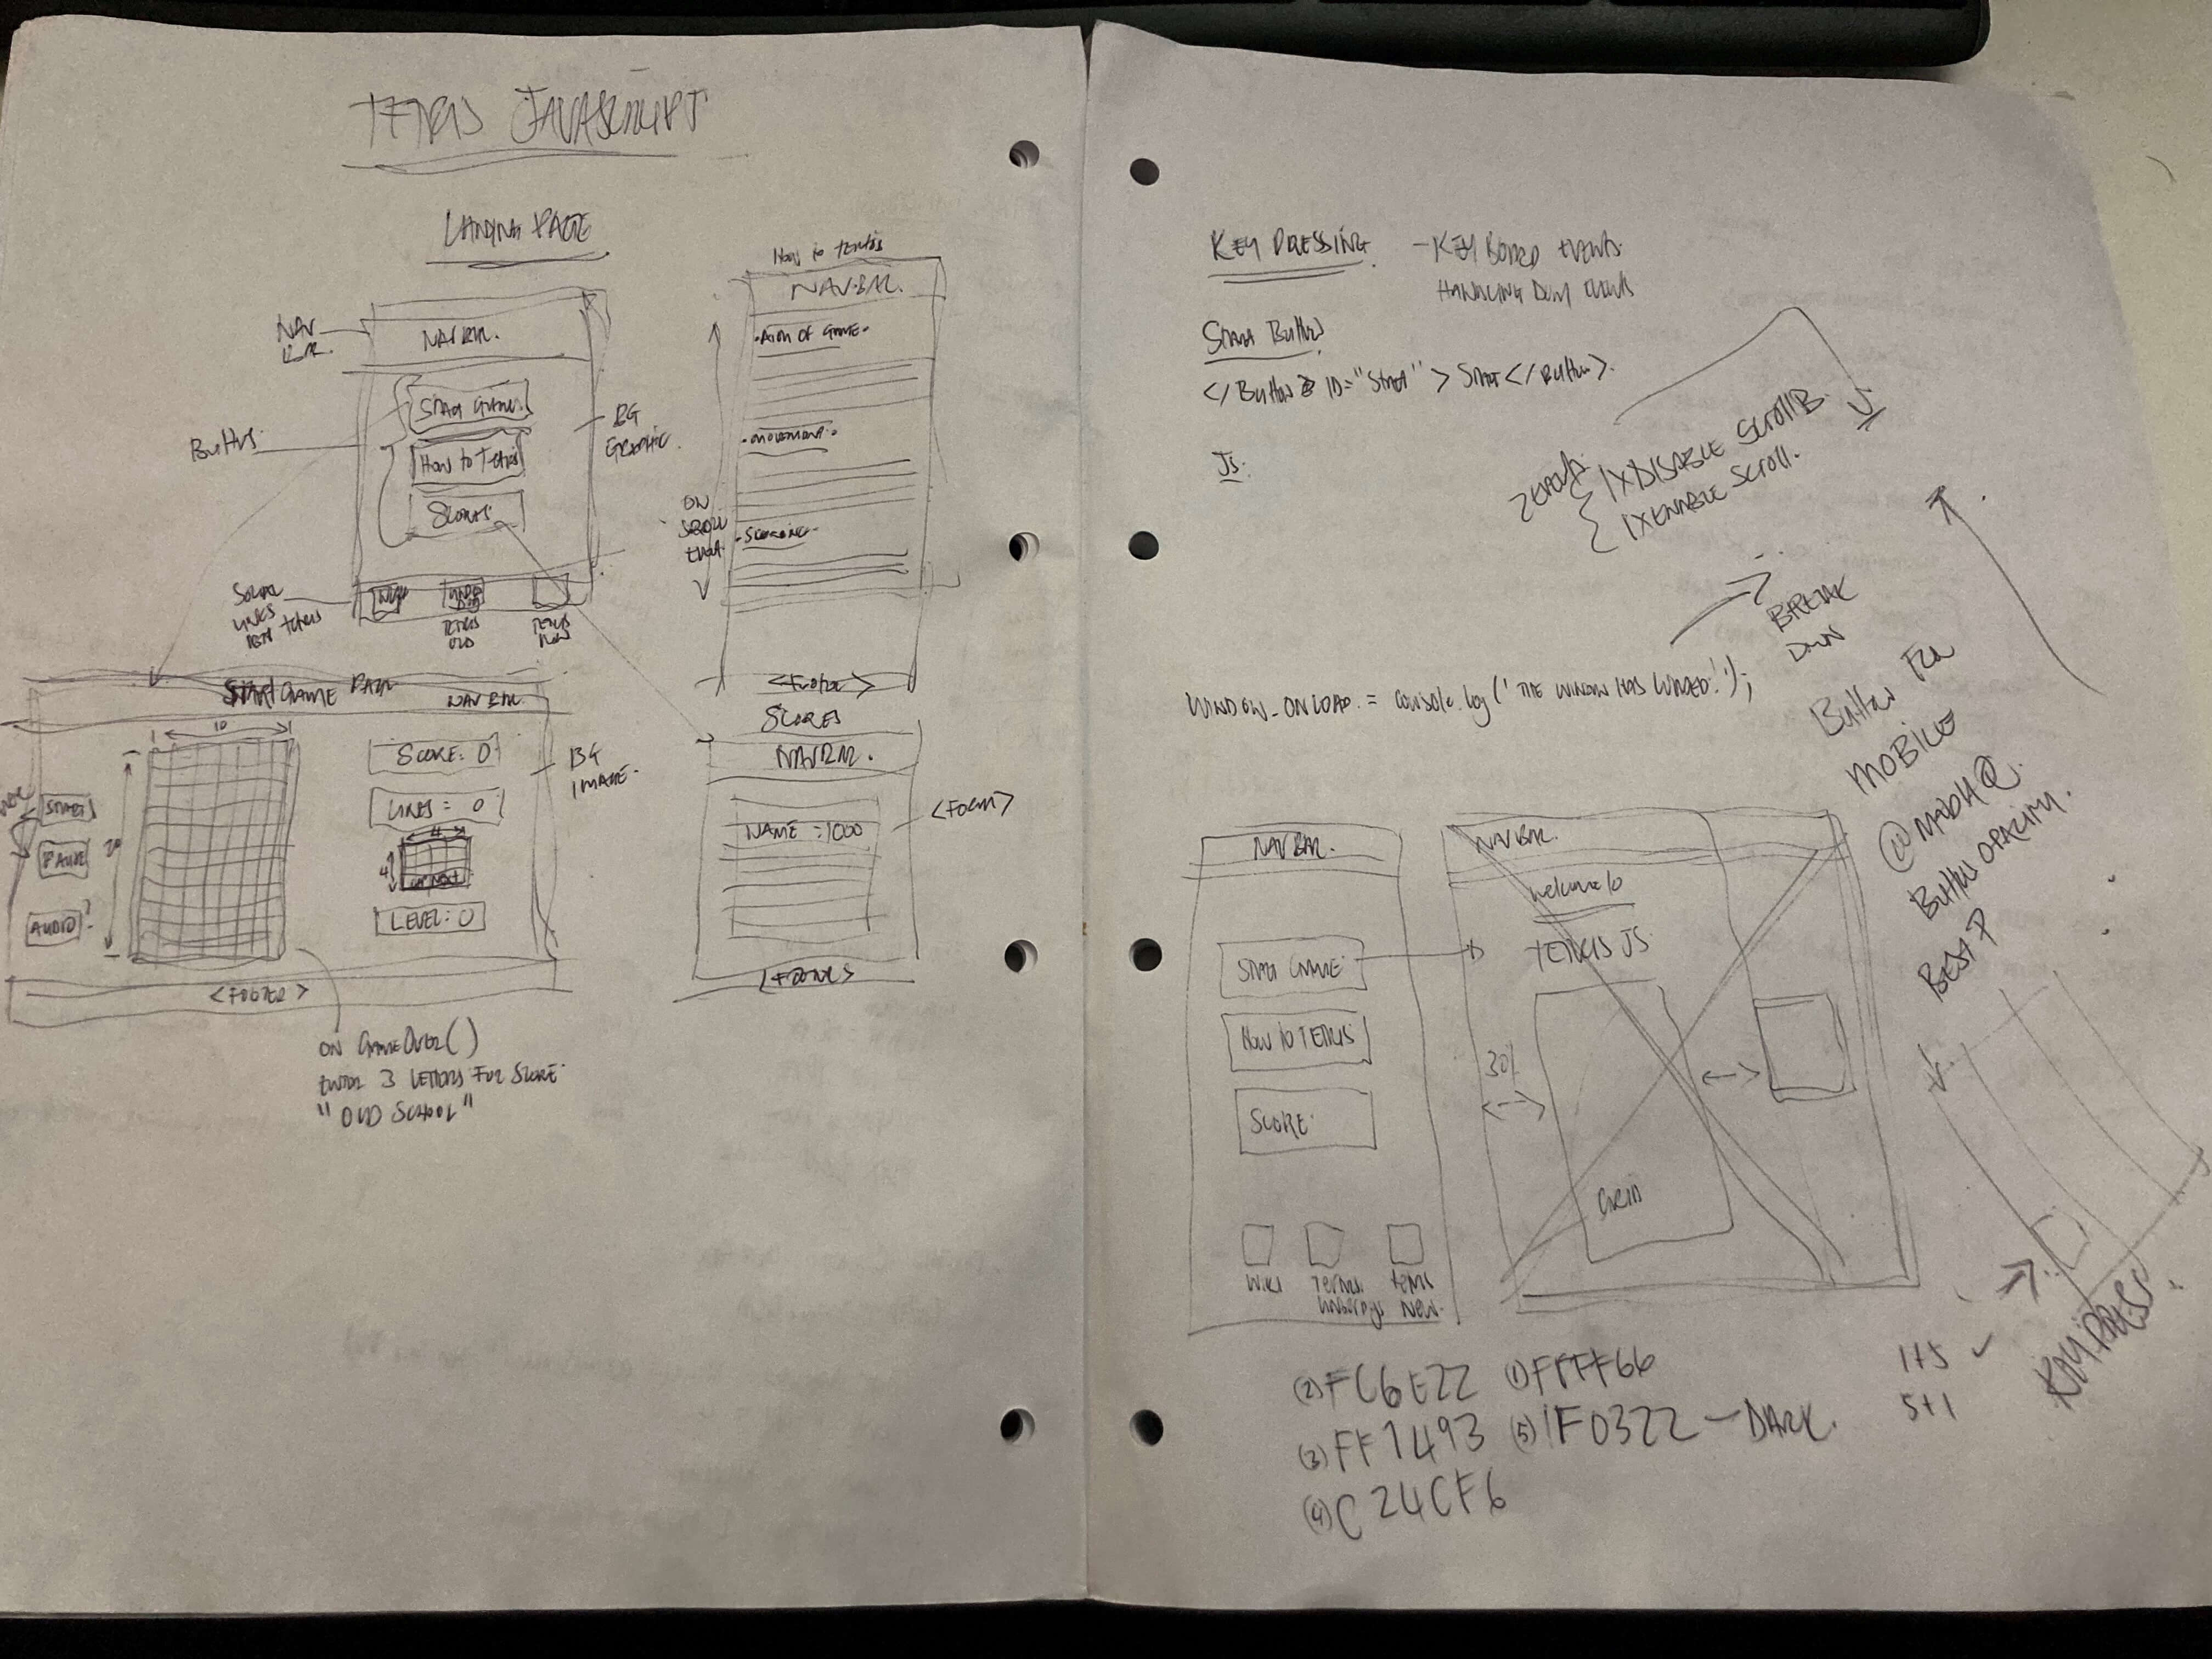 TETRIS JAVASCRIPT
LANDING PAGE
NAV
BAR.
NAVBAR.
START GAME
HOW TO TETRIS
SCORES
BUTTONS
BG
GRAPHIC.
SOCIAL
LINKS
TETRIS
WIKI
TETRIS
OLD
TETRIS
NEW
HOW TO TETRIS
NAVBAR.
AIM OF GAME.
MOVEMENT.
SCORING.
ON
SCROLL
EVENT
<FOOTER>
START GAME PAGE
NAVBAR
10
20
START
PAUSE
AUDIO?
SCORE: 0
LINES = 0
4
4
UP NEXT
LEVEL: 0
BG
IMAGE.
<FOOTER>
ON GAMEOVER()
ENTER 3 LETTERS FOR SCORE
"OLD SCHOOL"
SCORES
NAVBAR.
NAME : 1000
<FORM>
KEY PRESSING. - KEYBOARD EVENTS.
HANDLING DOM EVENTS
START BUTTON
</BUTTON ID="START"> START </BUTTON>.
JS.
1XDISABLE SCROLLB.
1XENABLE SCROLL.
WINDOW.ONLOAD = CONSOLE.LOG('THE WINDOW HAS LOADED!');
BREAK
DOWN
BUTTON FOR
MOBILE
BUTTON OPACITY.
BEST?
NAVBAR.
START GAME
HOW TO TETRIS
SCORE.
WIKI
TETRIS
NEW.
NAVBAR.
WELCOME TO
TETRIS JS.
30%
GRID
KEY PRESS
(2) FC6E22 (1) FFFF66
(3) FF1493 (5) 1F0322 - DARK.
(4) C24CF6
1+5 ✓
5+1